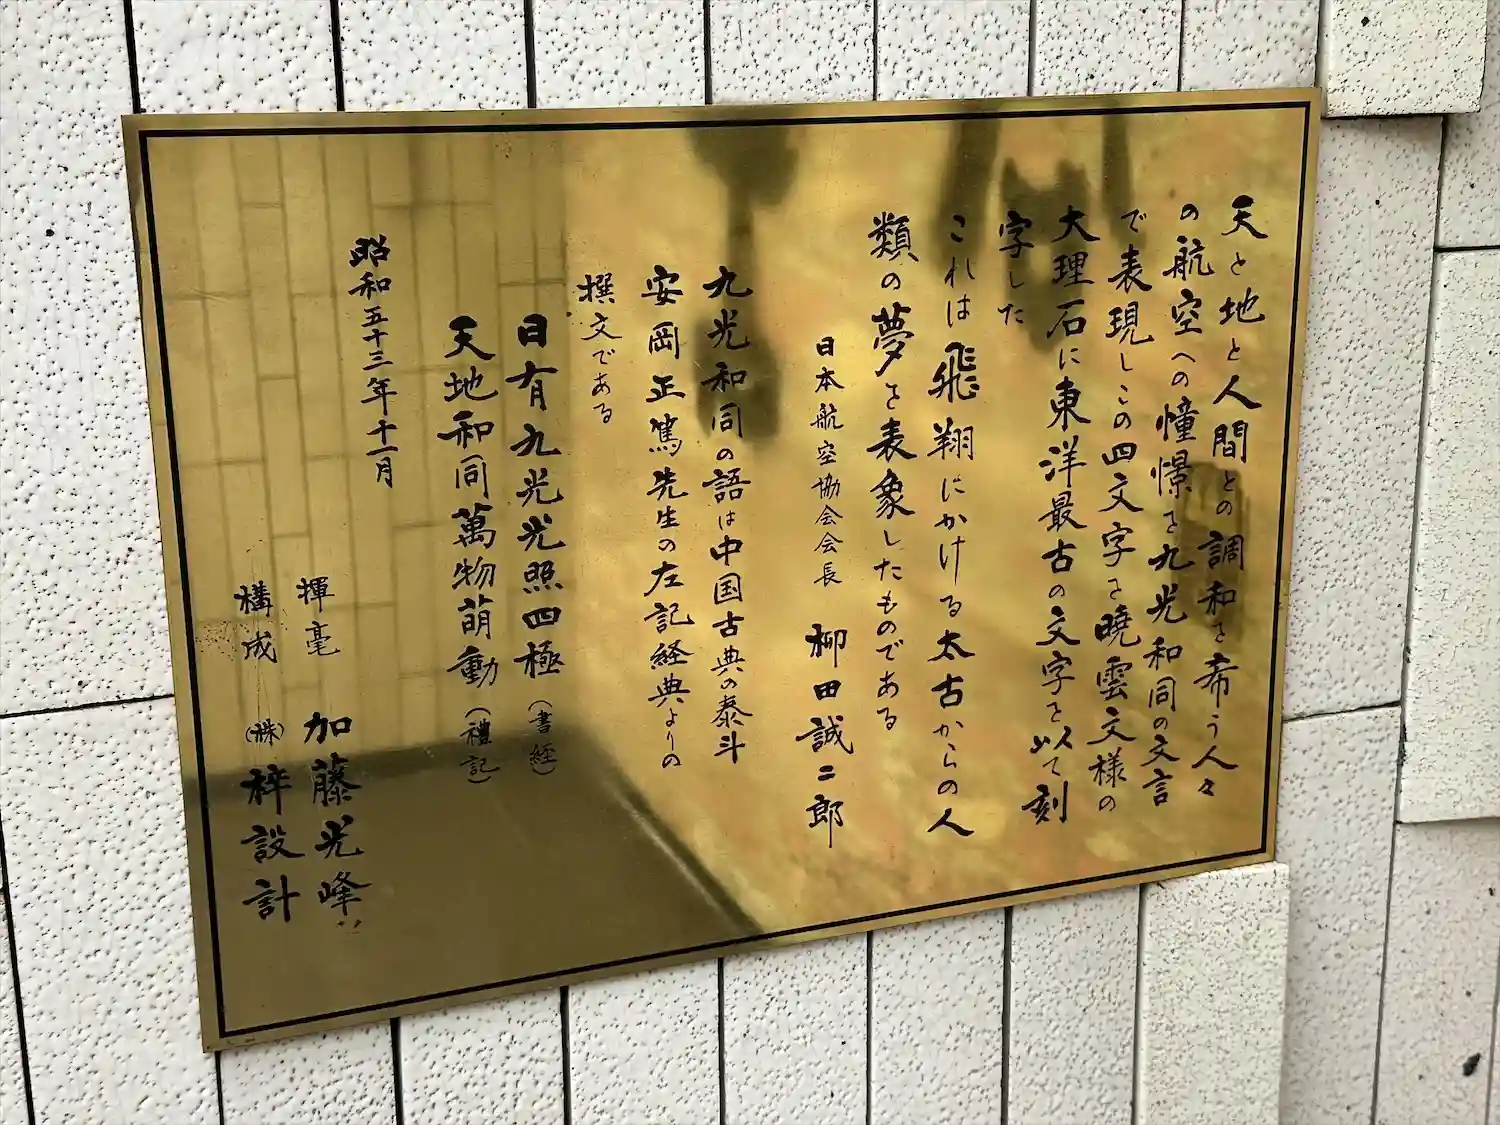 天と地と人間との調和を希う人々
の航空への憧憬を九光和同の文言
で表現しこの四文字を曉雲文様の
大理石に東洋最古の文字を以て刻
字した
これは飛翔にかける太古からの人
類の夢を表象したものである
日本航空協会会長 柳田誠二郎
九光和同の語は中国古典の泰斗
安岡正篤先生の左記経典よりの
撰文である
日有九光光照四極（書経）
天地和同萬物萌動（禮記）
昭和五十三年十一月
揮毫 加藤光峰
構成 ㈱梓設計